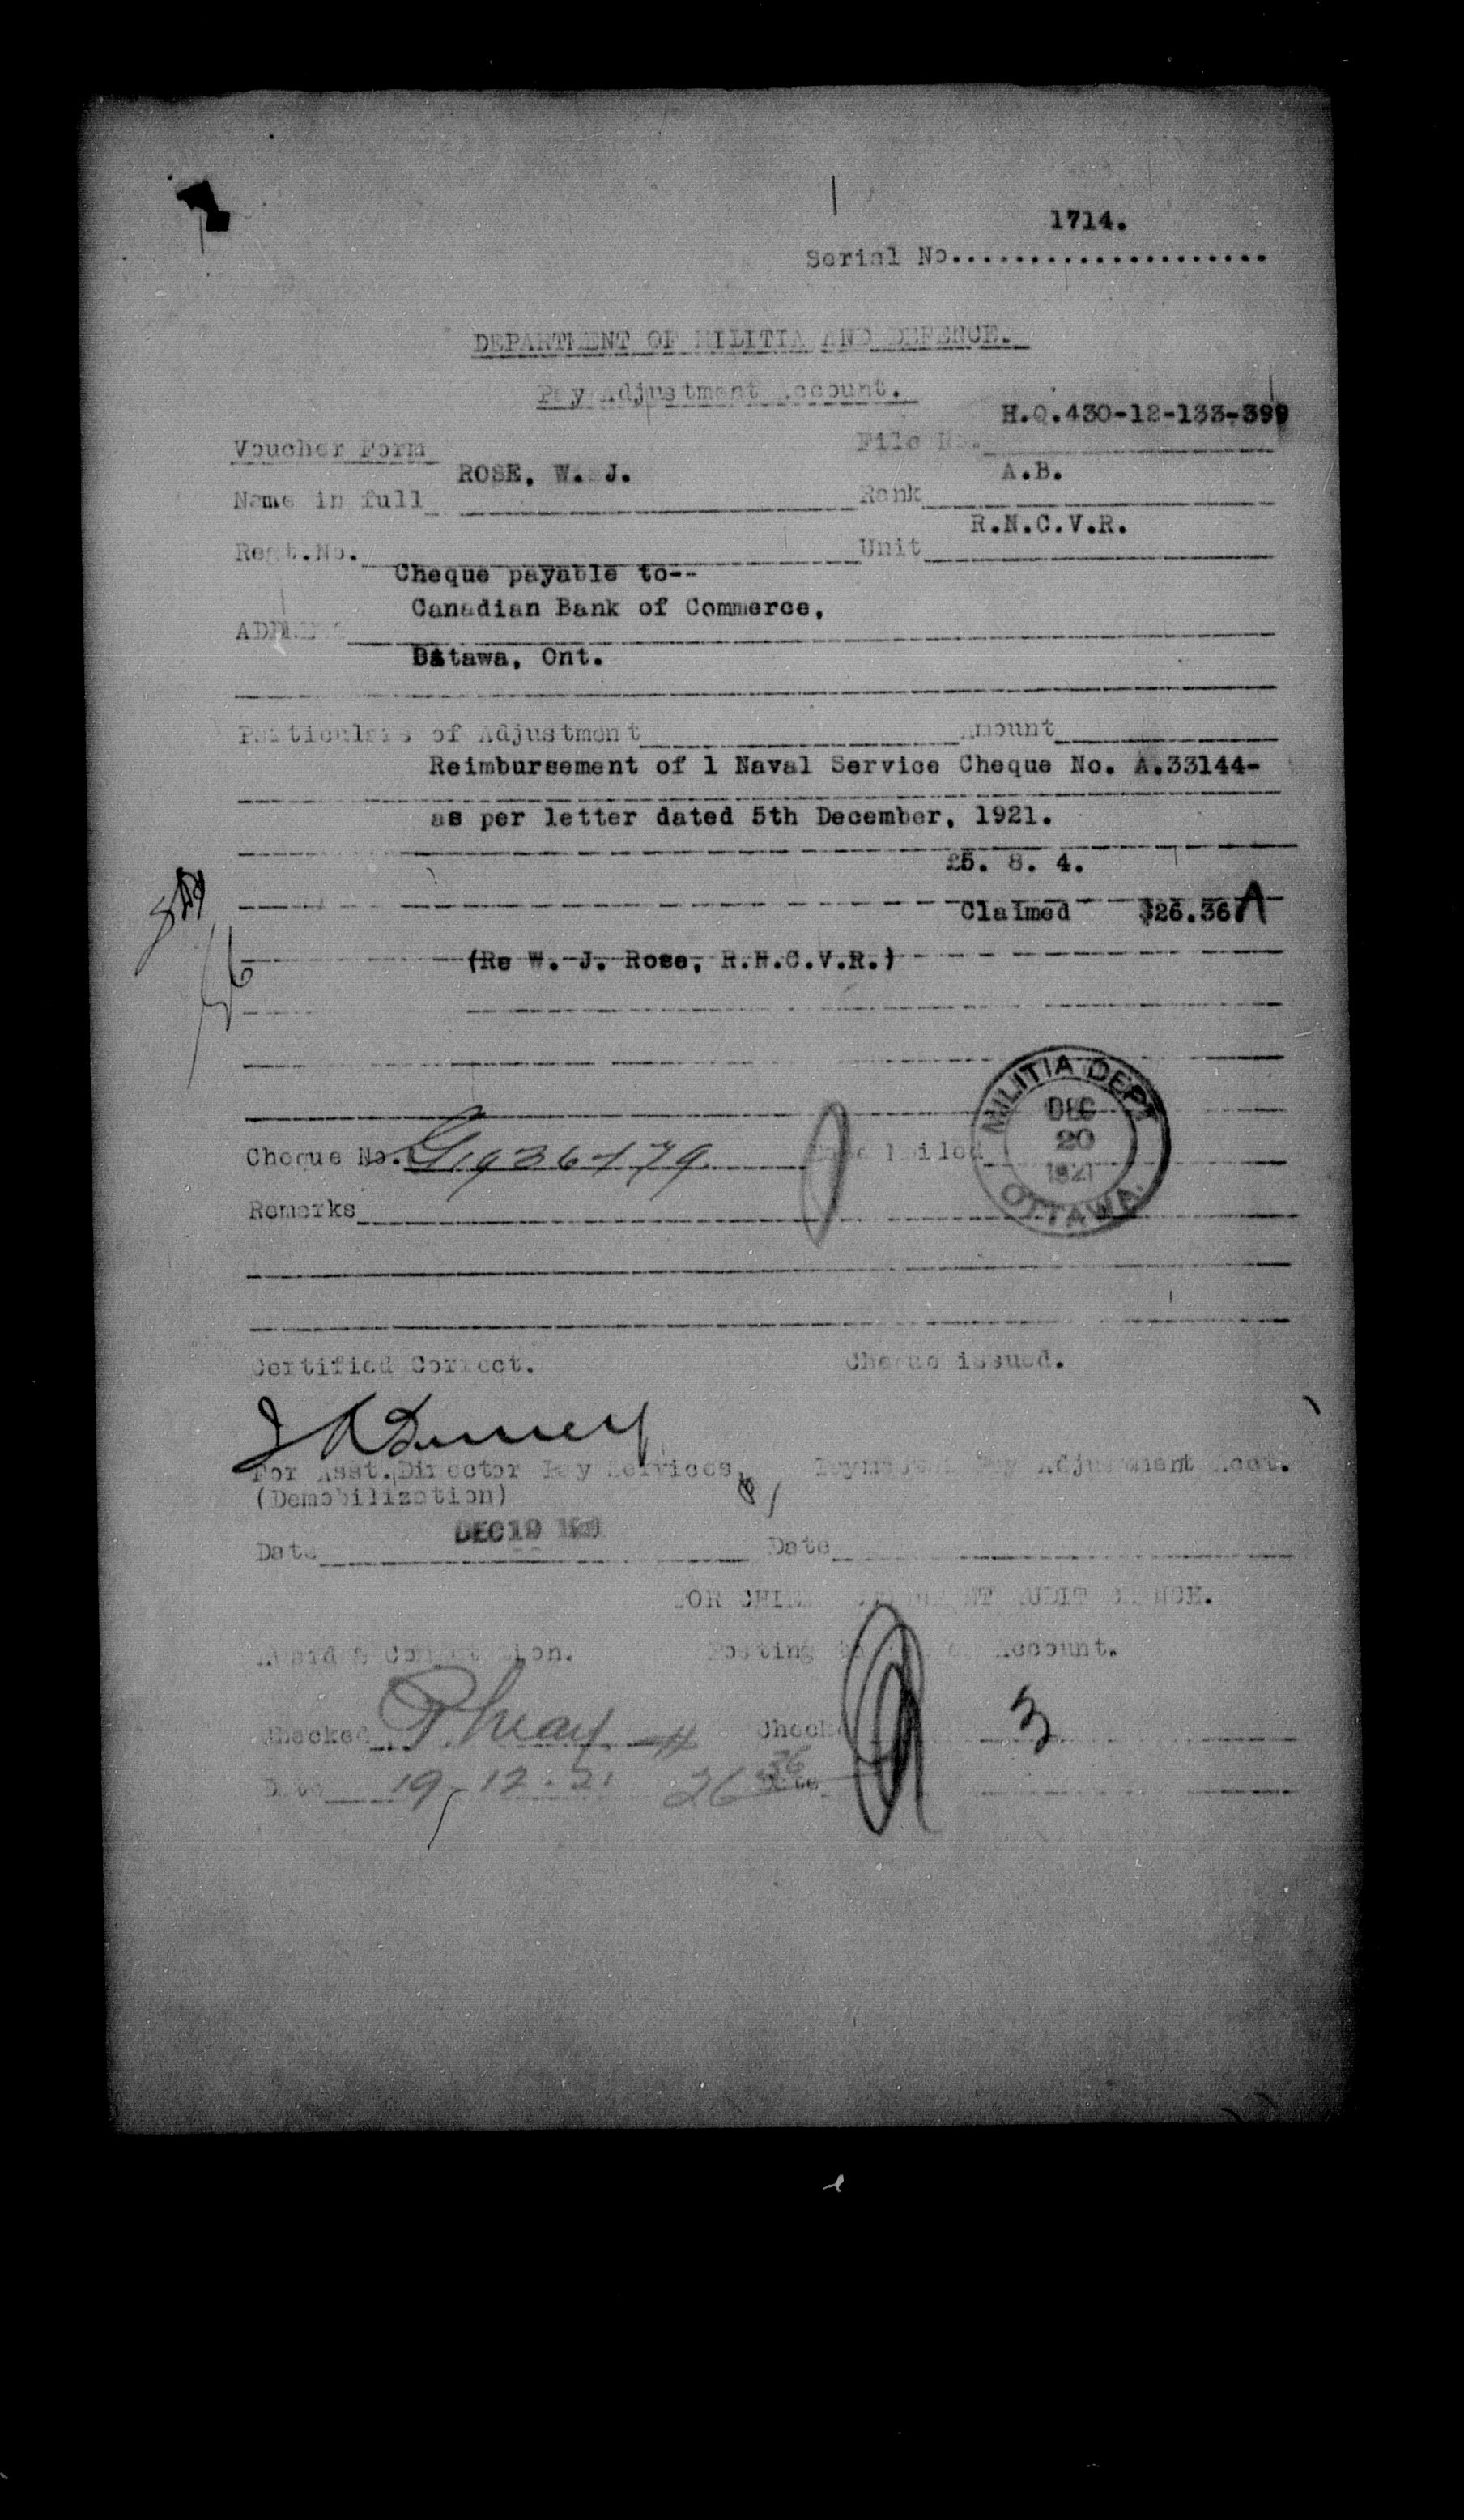 1714.
Serial No.....................
DEPARTMENT OF MILITIA AND DEFENCE.
Pay Adjustment Account.
H.Q.430-12-133-399
Voucher Form File No.
ROSE, W. J. A.B.
Name in full Rank
R.N.C.V.R.
Regt.No. Unit
Cheque payable to--
Canadian Bank of Commerce,
ADDRESS
Ottawa, Ont.
Particulars of Adjustment Amount
Reimbursement of 1 Naval Service Cheque No. A.33144-
as per letter dated 5th December, 1921.
£5. 8. 4.
Claimed $26.36
(Re W. J. Rose, R.N.C.V.R.)
Cheque No. Date Mailed
MILITIA DEPT
DEC
20
1921
OTTAWA.
Remarks
Certified Correct. Cheque issued.
For Asst. Director Pay Services, Paymaster Pay Adjustment Acct.
(Demobilization)
DEC 19 1921
Date Date
FOR CHIEF AUDIT
Posting Account.
Checked Checked
Date 19-12-21 26 36 Date
3